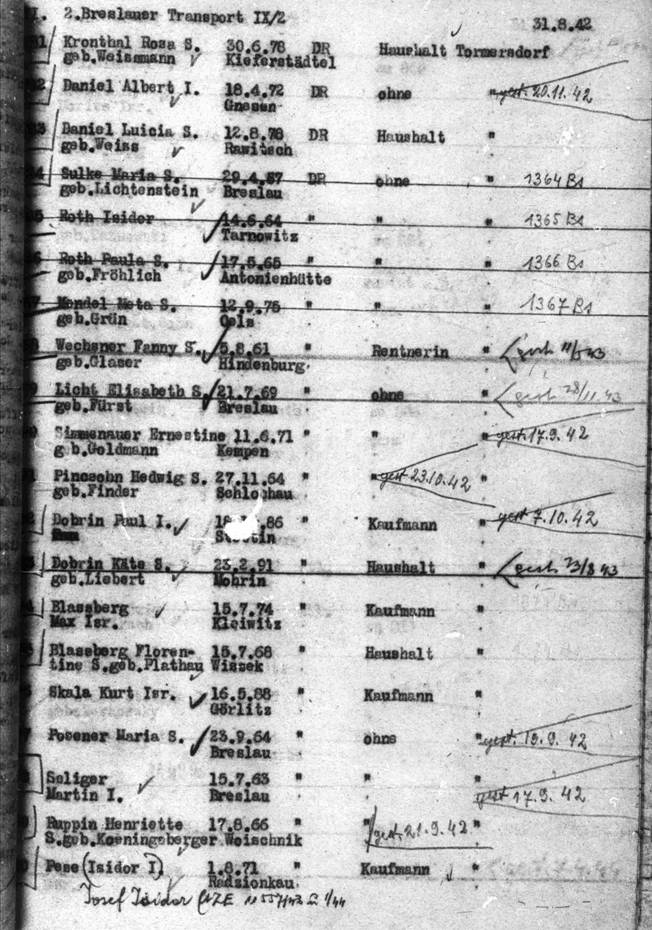 I. 2.Breslauer Transport IX/2 31.8.42
Kronthal Rosa S. 30.6.78 DR Haushalt Tormersdorf
geb.Weissmann Kieferstädtel
Daniel Albert I. 18.4.72 DR ohne " gest. 20.11.42
Gnesen
Daniel Luicia S. 12.8.78 DR Haushalt "
geb.Weiss Rawitsch
Sulke Maria S. 29.4.67 DR ohne " 1364 Bs
geb.Lichtenstein Breslau
Roth Isidor 14.6.64 " " " 1365 Bs
Tarnowitz
Roth Paula S. 17.5.65 " " " 1366 Bs
geb.Fröhlich Antonienhütte
Mendel Meta S. 12.9.75 " " " 1367 Bs
geb.Grün Oels
Wechsner Fanny S. 5.8.61 " Rentnerin " gest.
geb.Glaser Hindenburg
Licht Elisabeth S. 21.7.69 " ohne " gest. 28/11.43
geb.Fürst Breslau
Simmenauer Ernestine 11.6.71 " " " gest. 17.9.42
g b.Goldmann Kempen
Pincsohn Hedwig S. 27.11.64 " " gest. 23.10.42
geb.Finder Schlochau
Dobrin Paul I. 86 " Kaufmann " gest. 7.10.42
Dobrin Käte S. 23.2.91 " Haushalt " gest. 23/8 43
geb.Liebert Mohrin
Blassberg 15.7.74 " Kaufmann "
Max Isr. Kleiwitz
Blassberg Floren- 15.7.68 " Haushalt "
tine S.geb.Plathau Wissek
Skala Kurt Isr. 16.5.88 " Kaufmann "
Görlitz
Posener Maria S. 23.9.64 " ohne " gest. 19.9.42
Breslau
Seliger 15.7.63 " " "
Martin I. Breslau gest 17.9.42
Ruppin Henriette 17.8.66 " " gest. 21.9.42 "
S.geb.Koeningsberger Woischnik
Pese (Isidor I) 1.8.71 " Kaufmann "
Radzionkau
Josef Isidor